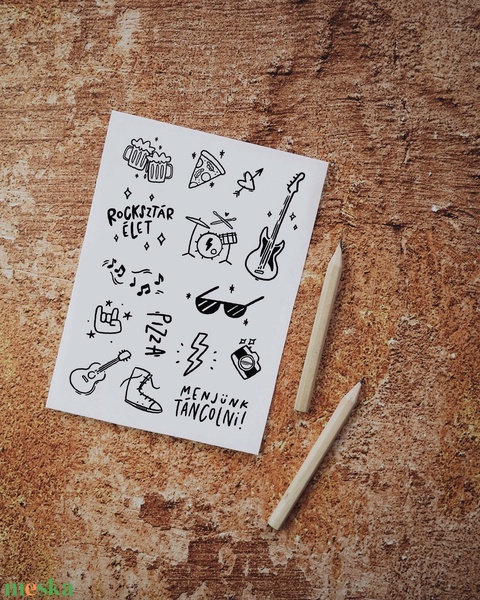 ROCKSZTÁR
ÉLET
PIZZA
MENJÜNK
TÁNCOLNI!
meska